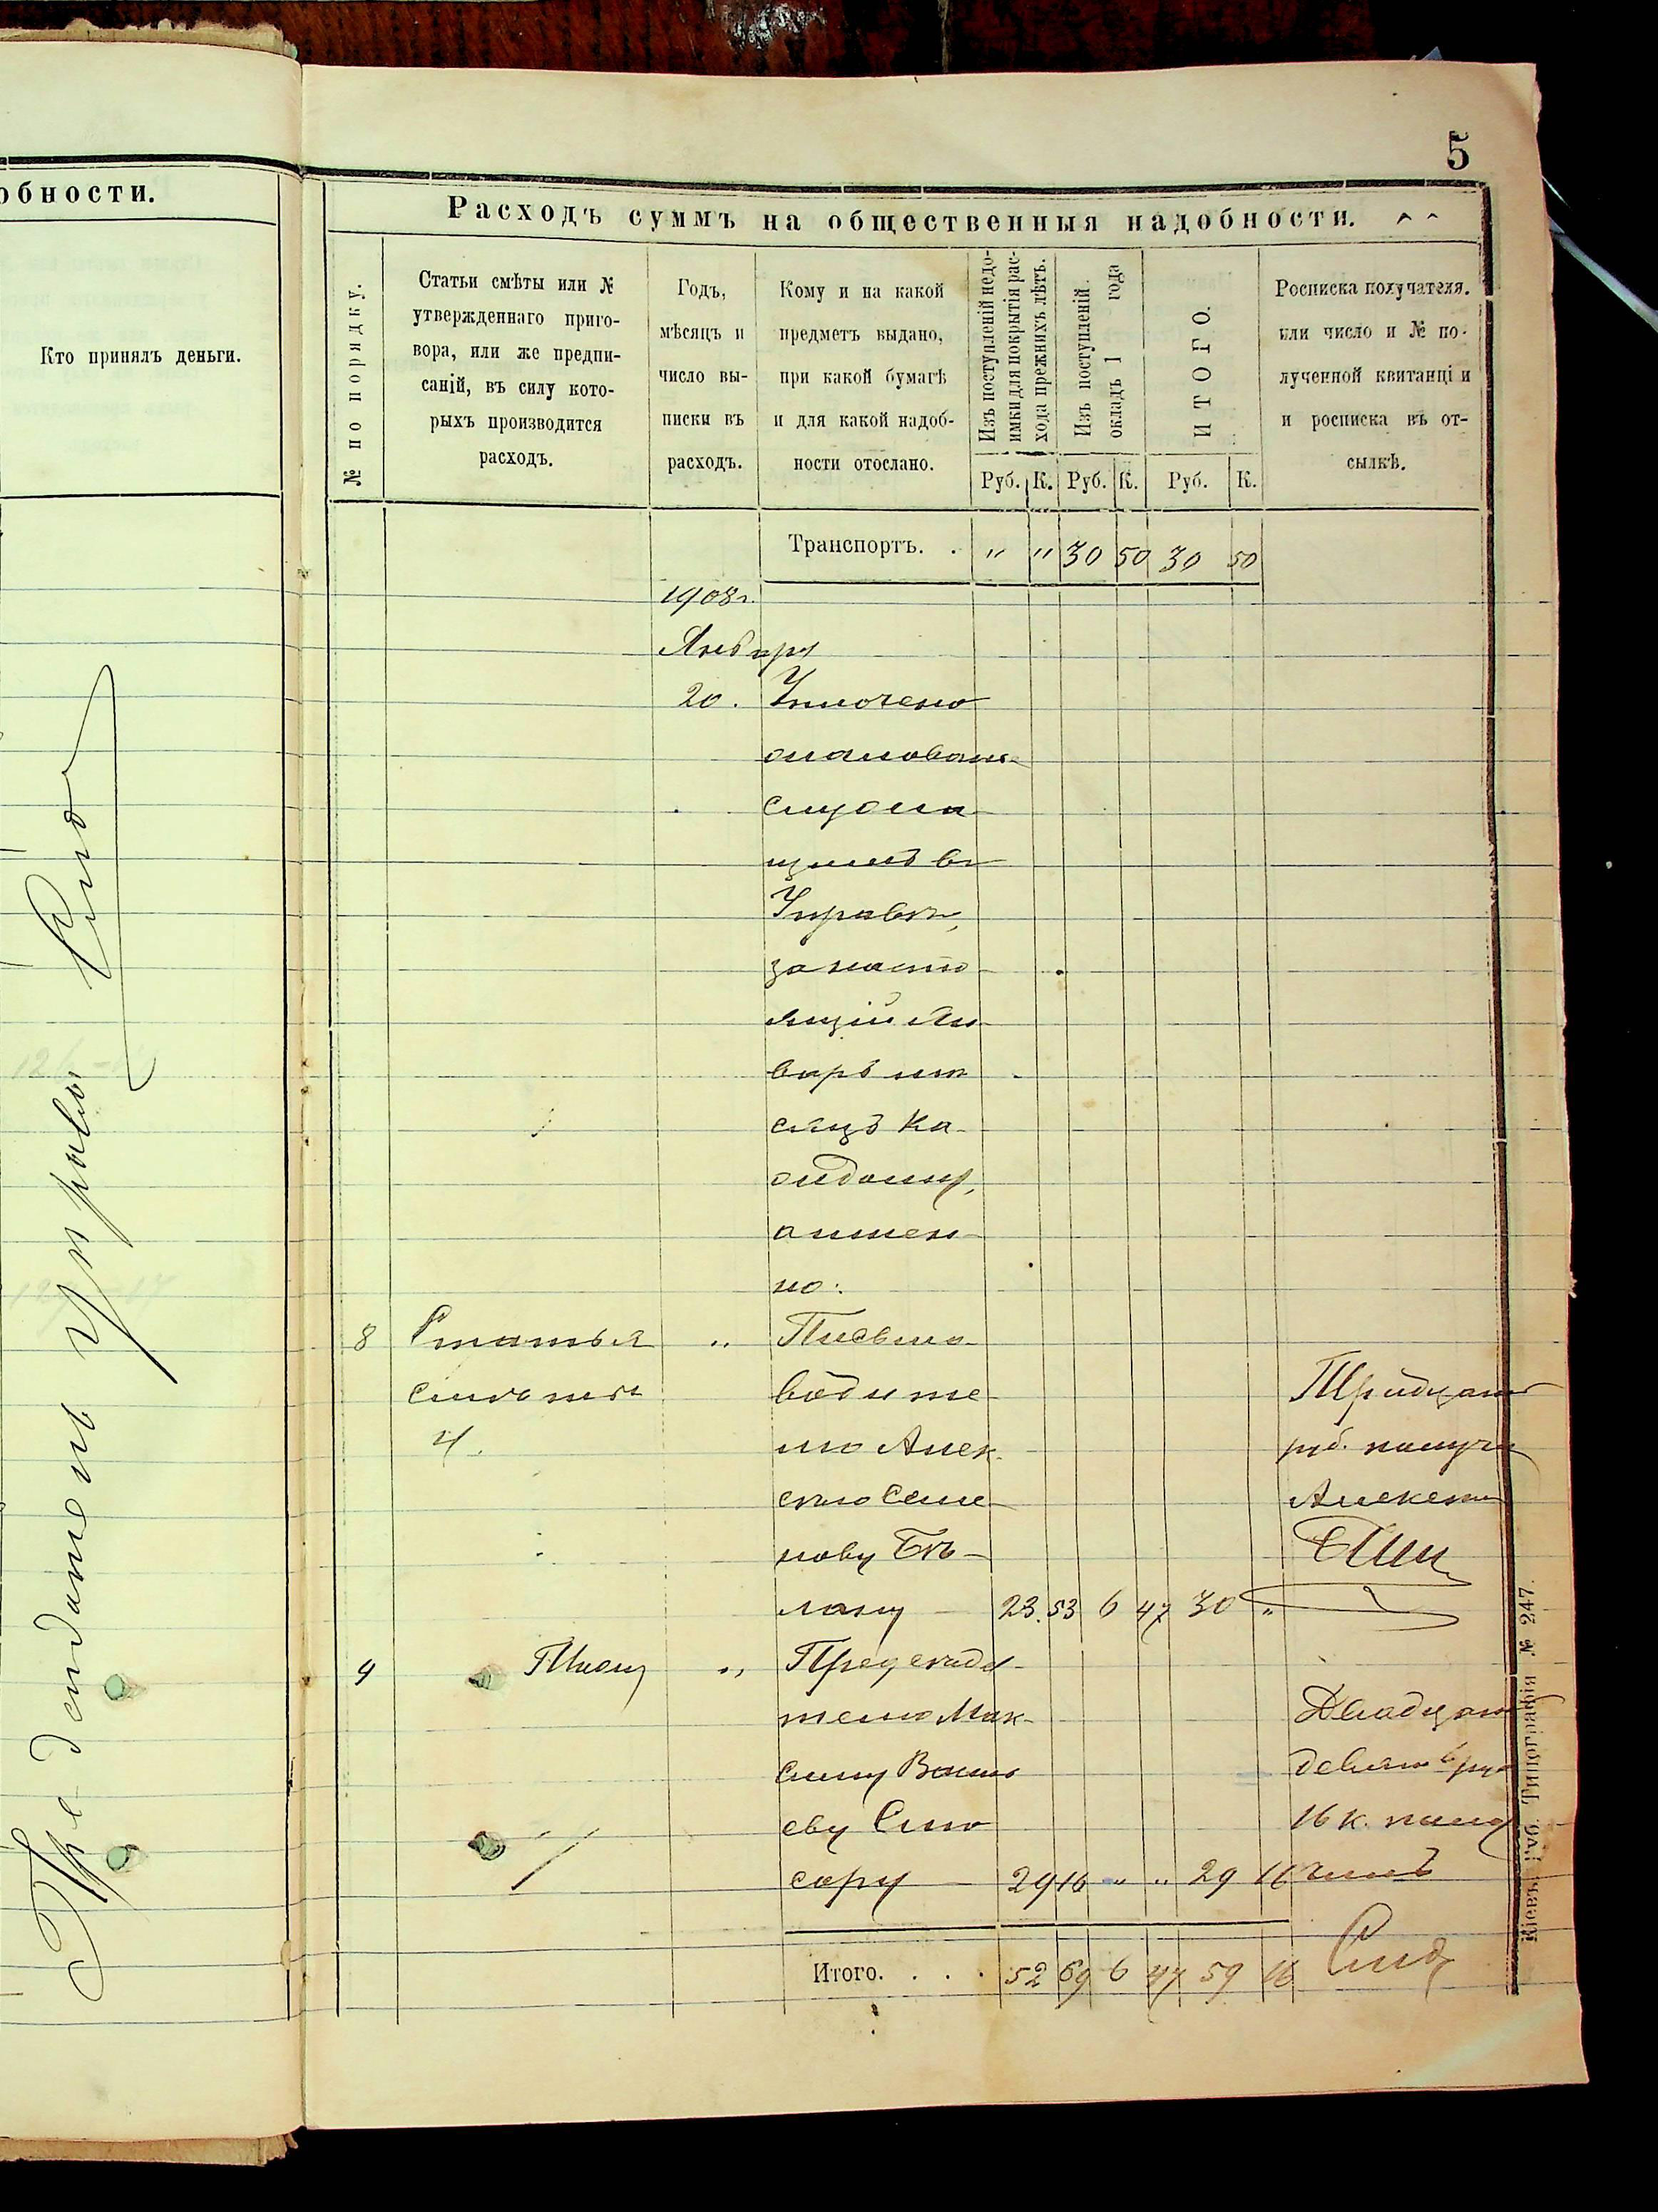 обности.
Кто принялъ деньги.
Предсѣдатель управы
5
Расходъ суммъ на общественныя надобности.
№ по порядку.
Статьи смѣты или №
утвержденнаго приго-
вора, или же предпи-
саній, въ силу кото-
рыхъ производится
расходъ.
Годъ,
мѣсяцъ и
число вы-
писки въ
расходъ.
Кому и на какой
предметъ выдано,
при какой бумагѣ
и для какой надоб-
ности отослано.
Изъ поступленій недо-
имки для покрытія рас-
хода прежнихъ лѣтъ.
Изъ поступленій
окладъ 1 года
ИТОГО.
Росписка получателя.
или число и № по-
лученной квитанціи
и росписка въ от-
сылкѣ.
Руб. К. Руб. К. Руб. К.
Транспортъ. . " " 30 50 30 50
1908 г.
Января
20. Уплочено
жалованья
служа-
щимъ въ
Управѣ,
за насто-
ящій Ян-
варь мѣ-
сяцъ ка-
ждому,
а имен-
но:
8 Статья " Письмо-
смѣты водите-
4. лю Алек-
сѣю Семе-
нову Бѣ-
лому 23 53 6 47 30 "
Тридцать
руб. получи
Алексѣй
9 Тоже " Предсѣда-
телю Мак-
симу Василь
еву Слю
сарю 29 16 " " 29 16
Двадцать
девять руб
16 к. полу
чилъ
Итого. . . . 52 69 6 47 59 16
Кіевъ. Губ. Типографія № 247.